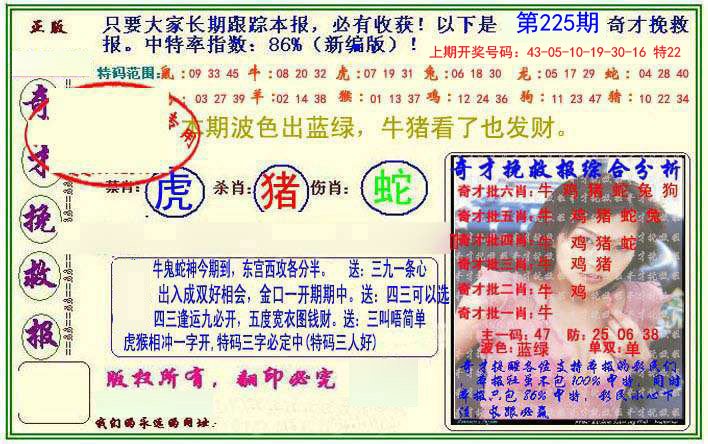 正版
只要大家长期跟踪本报，必有收获！以下是 第225期 奇才挽救
报。中特率指数：86%（新编版）！
上期开奖号码：43-05-10-19-30-16 特22
特码范围:鼠:09 33 45 牛:08 20 32 虎:07 19 31 兔:06 18 30 龙:05 17 29 蛇:04 28 40
:03 27 39 羊:02 14 38 猴:01 13 37 鸡:12 24 36 狗:11 23 47 猪:10 22 34
本期波色出蓝绿，牛猪看了也发财。
奇才挽救报
禁肖:虎 杀肖:猪 伤肖:蛇
牛鬼蛇神今期到，东宫西攻各分半。 送：三九一条心
出入成双好相会，金口一开期期中。送：四三可以选
四三逢运九必开，五度宽衣图钱财。送：三叫唔简单
虎猴相冲一字开,特码三字必定中(特码三人好)
版权所有，翻印必究
我们的永远的网址:
奇才挽救报综合分析
奇才批六肖:牛 鸡 猪 蛇 兔 狗
奇才批五肖:牛 鸡 猪 蛇 兔
奇才批四肖:牛 鸡 猪 蛇
奇才批三肖:牛 鸡 猪
奇才批二肖:牛 鸡
奇才批一肖:牛
主一码:47 防:25 06 38
波色:蓝绿 单双:单
奇才提醒各位支持本报的彩民们
，本报虽不包100%中特，同时
本报只包86%中特，彩民小心下
注